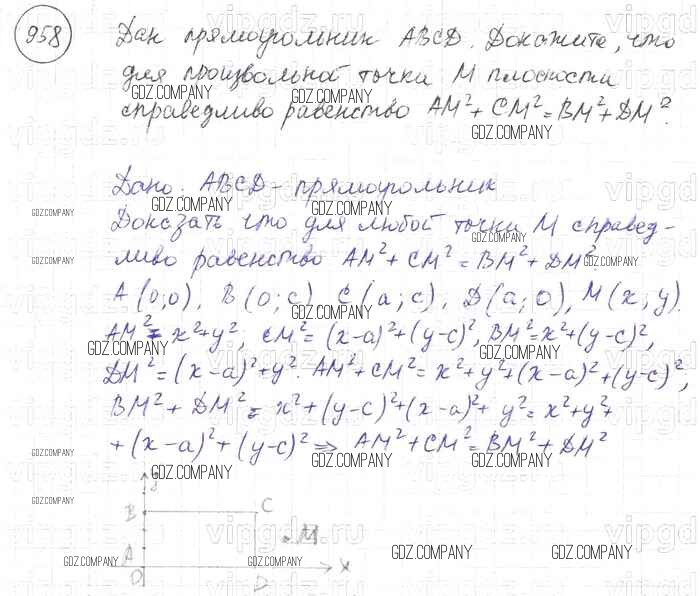 958
Дан прямоугольник ABCD. Докажите, что
для произвольной точки M плоскости
справедливо равенство AM²+CM²=BM²+DM².
Дано: ABCD - прямоугольник
Доказать что для любой точки M справед-
ливо равенство AM²+CM²=BM²+DM².
A(0;0), B(0;c), C(a;c), D(a;0), M(x;y).
AM²=x²+y², CM²=(x-a)²+(y-c)², BM²=x²+(y-c)²,
DM²=(x-a)²+y². AM²+CM²=x²+y²+(x-a)²+(y-c)²,
BM²+DM²=x²+(y-c)²+(x-a)²+y²=x²+y²+
+(x-a)²+(y-c)² ⇒ AM²+CM²=BM²+DM²
y
B C
M
A x
O D
GDZ.COMPANY
vipgdz.ru